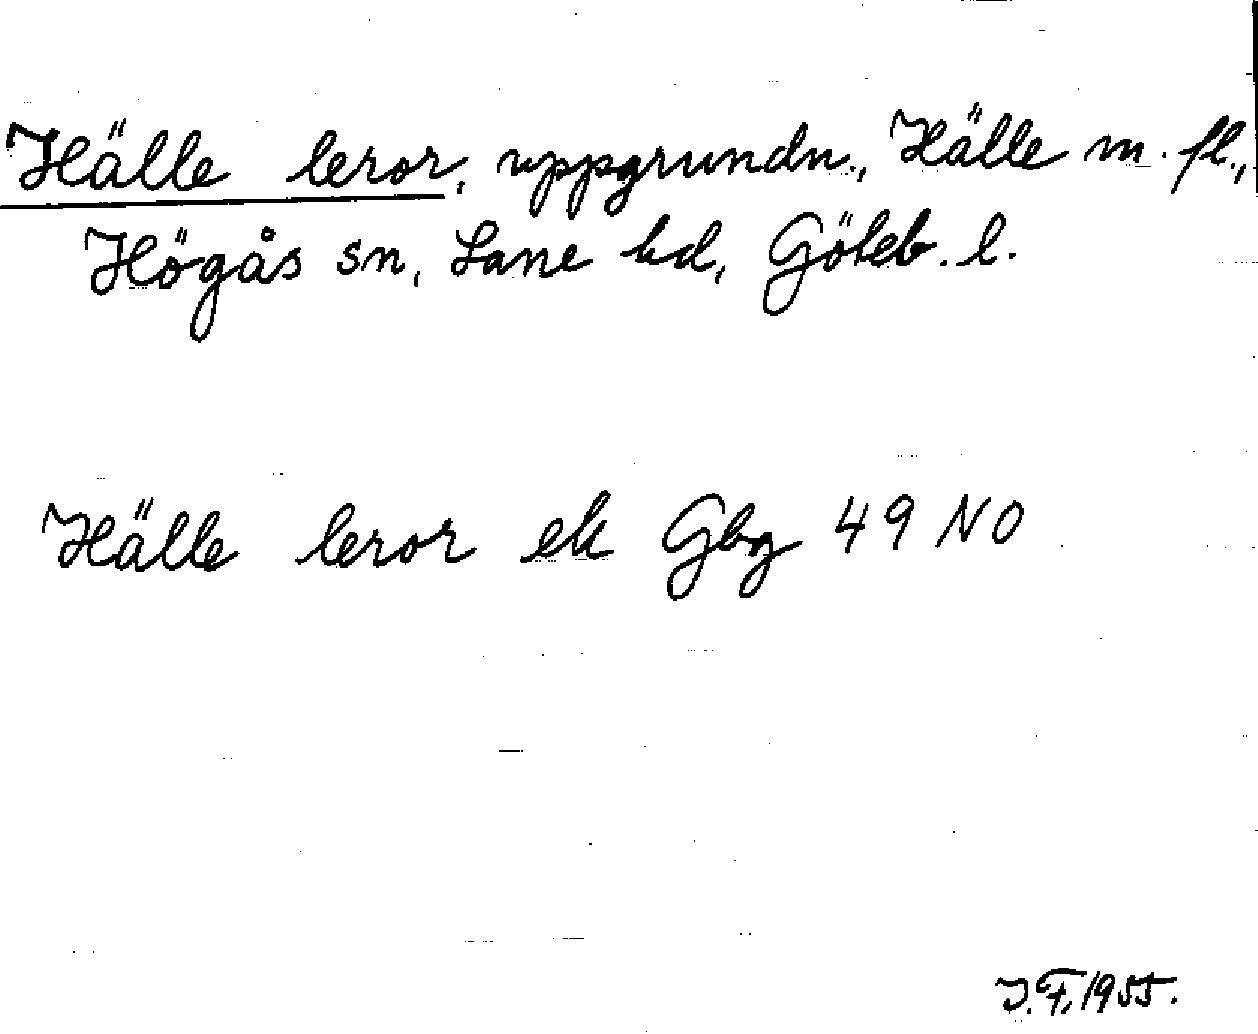 Hälle leror, uppgrundn., Hälle m. fl.,
Högås sn, Lane hd, Göteb. l.
Hälle leror ek Gbg 49 NO
J. F. 1955.